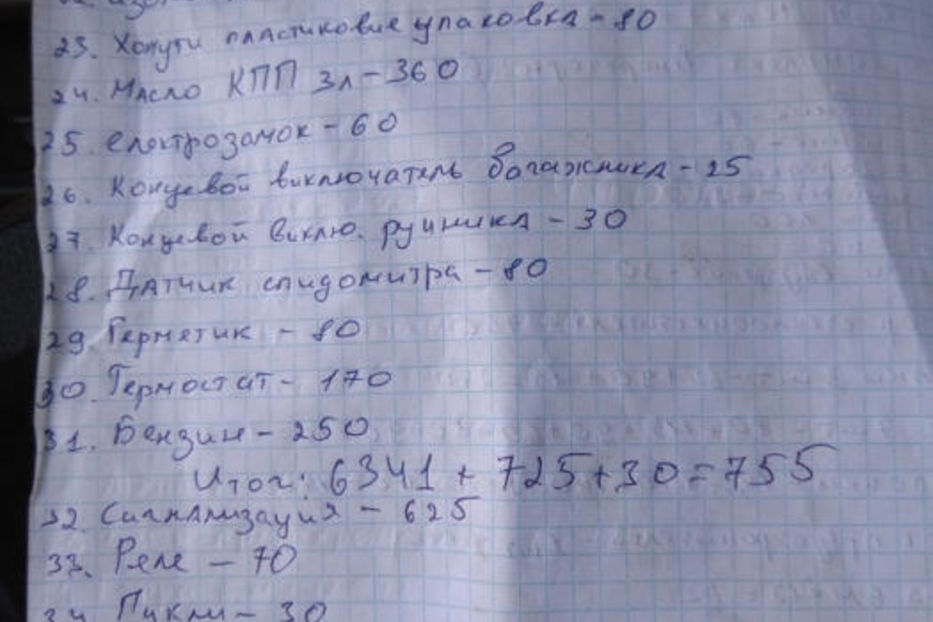 23. Хомути пластиковие упаковка - 80
24. Масло КПП 3л - 360
25. електрозамок - 60
26. Концевой виключатель багажника - 25
27. Концевой виклю. ручника - 30
28. Датчик спидомитра - 80
29. Герметик - 80
30. Термостат - 170
31. Бензин - 250
Итог: 6341 + 725+30=755
32. Сигнализация - 625
33. Реле - 70
34. - 30